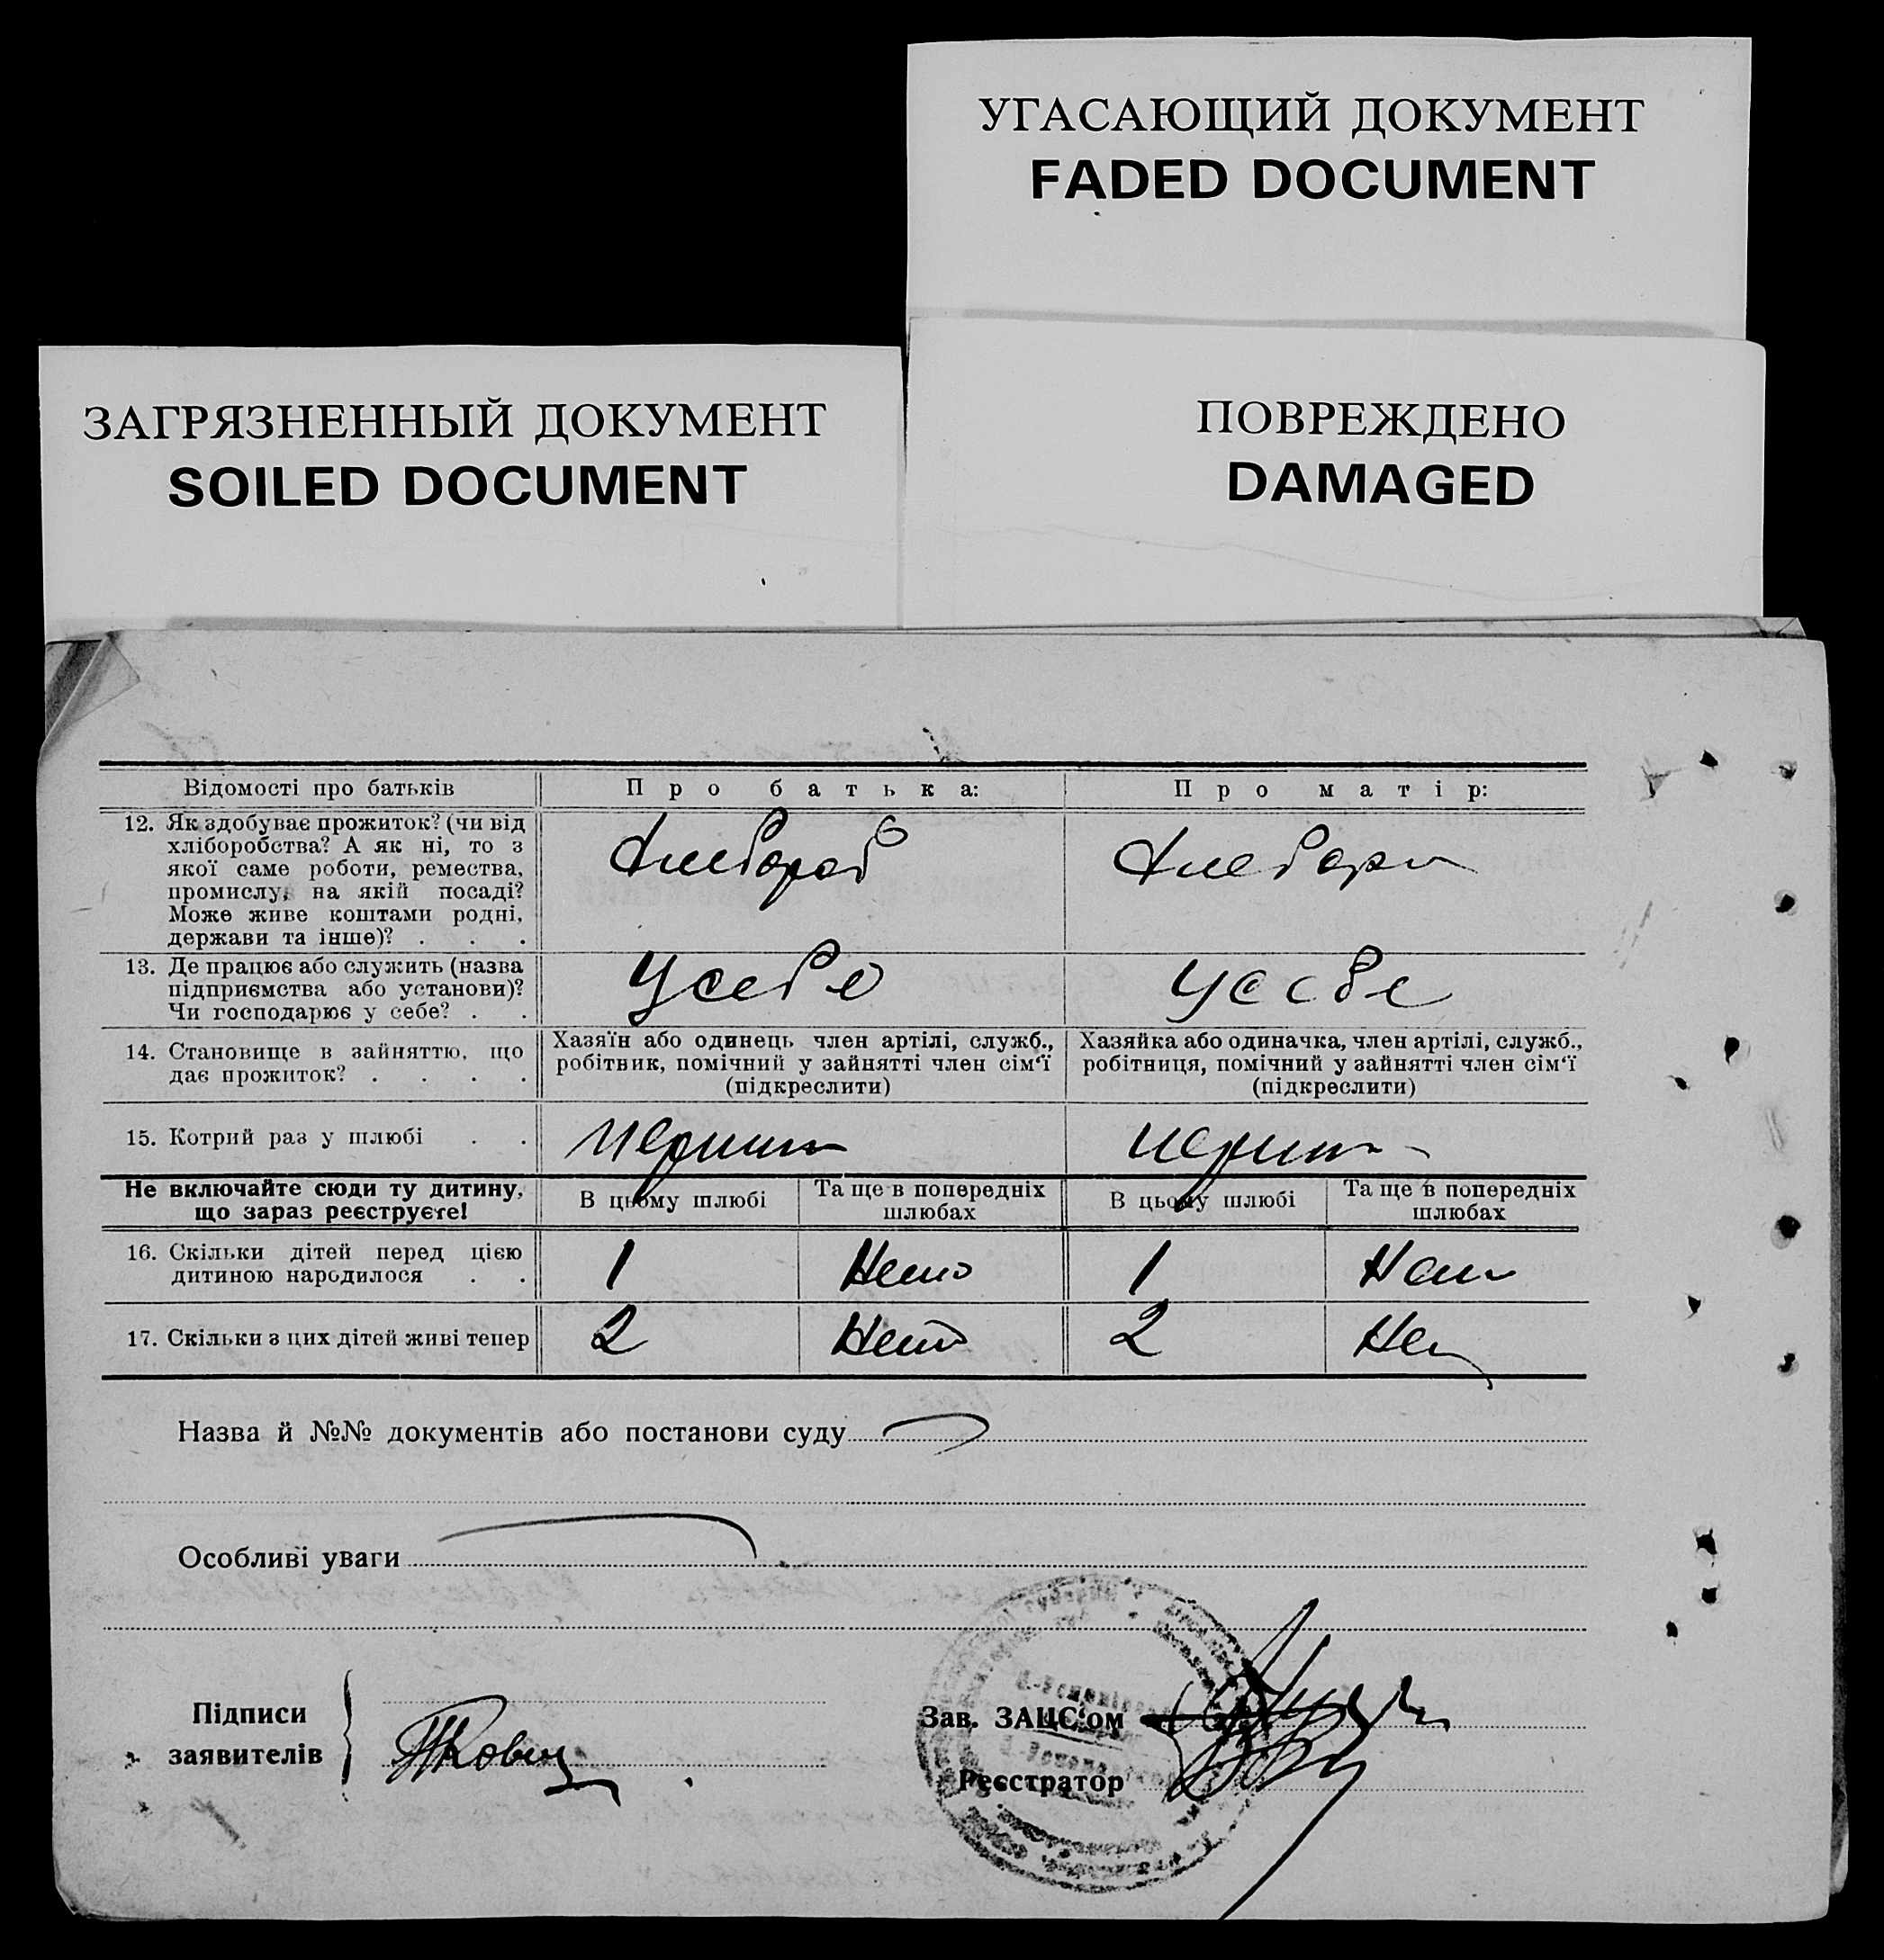 УГАСАЮЩИЙ ДОКУМЕНТ
FADED DOCUMENT
ЗАГРЯЗНЕННЫЙ ДОКУМЕНТ
SOILED DOCUMENT
ПОВРЕЖДЕНО
DAMAGED
Відомості про батьків
Про батька:
Про матір:
12. Як здобуває прожиток? (чи від
хліборобства? А як ні, то з
якої саме роботи, ремества,
промислу, на якій посаді?
Може живе коштами родні,
держави та інше)? . . .
Хлебороб
13. Де працює або служить (назва
підприємства або установи)?
Чи господарює у себе? . .
У себе
У себе
14. Становище в зайняттю, що
дає прожиток? . . . .
Хазяїн або одинець член артілі, служб.,
робітник, помічний у зайнятті член сім'ї
(підкреслити)
Хазяйка або одиначка, член артілі, служб.,
робітниця, помічний у зайнятті член сім'ї
(підкреслити)
15. Котрий раз у шлюбі . .
Не включайте сюди ту дитину,
що зараз реєструєте!
В цьому шлюбі
Та ще в попередніх
шлюбах
В цьому шлюбі
Та ще в попередніх
шлюбах
16. Скільки дітей перед цією
дитиною народилося . .
1
Нето
1
17. Скільки з цих дітей живі тепер
2
Нето
2
Назва й №№ документів або постанови суду
Особливі уваги
Підписи
заявителів
Зав. ЗАЦС'ом
Реєстратор